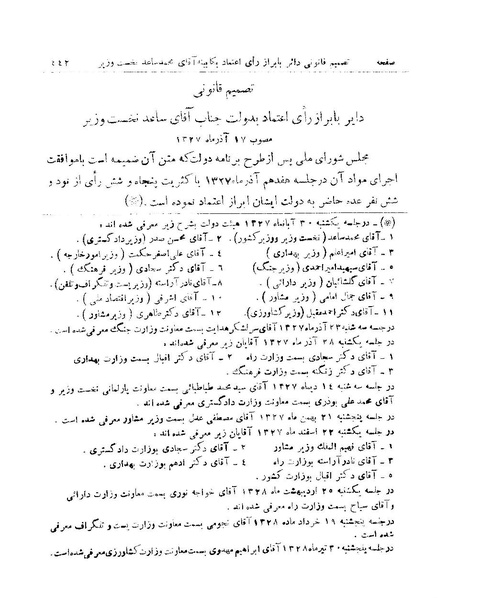 صفحه تصمیم قانونی دائر بابراز رأی اعتماد بکابینه آقای محمد ساعد نخست وزیر ۴۴۲
تصمیم قانونی
دایر بابراز رأی اعتماد بدولت جناب آقای ساعد نخست وزیر
مصوب ۱۷ آذرماه ۱۳۲۷
مجلس شورای ملی پس از طرح برنامه دولت که متن آن ضمیمه است با موافقت
اجرای مواد آن در جلسه هفدهم آذرماه ۱۳۲۷ با کثریت پنجاه و شش رأی از نود و
شش نفر عده حاضر به دولت ایشان ابراز اعتماد نموده است. (*)
(*) - در جلسه یکشنبه ۳۰ آبانماه ۱۳۲۷ هیئت دولت بشرح زیر معرفی شده اند :
۱ - آقای محمد ساعد ( نخست وزیر و وزیر کشور ). ۲ - آقای محسن صدر (وزیر دادگستری).
۳ - آقای امیر اعلم ( وزیر بهداری ) ۴ - آقای علی اصغر حکمت ( وزیر امور خارجه ) .
۵ - آقای سپهبد امیر احمدی ( وزیر جنگ ) ۶ - آقای دکتر سجادی ( وزیر فرهنگ ) .
۷ - آقای گلشائیان ( وزیر دارائی ) . ۸ - آقای نادر آراسته (وزیر پست و تلگراف و تلفن).
۹ - آقای جمال امامی ( وزیر مشاور ) . ۱۰ - آقای اشرفی ( وزیر اقتصاد ملی ) .
۱۱ - آقای دکتر احمد مقبل (وزیر کشاورزی). ۱۲ - آقای دکتر طاهری ( وزیر مشاور ) .
در جلسه سه شنبه ۲۳ آذرماه ۱۳۲۷ آقای سرلشکر هدایت بسمت معاونت وزارت جنگ معرفی شده است.
در جلسه یکشنبه ۲۸ آذر ماه ۱۳۲۷ آقایان زیر معرفی شده اند :
۱ - آقای دکتر سجادی بسمت وزارت راه ۲ - آقای دکتر اقبال بسمت وزارت بهداری
۳ - آقای دکتر زنگنه بسمت وزارت فرهنگ .
در جلسه سه شنبه ۱۴ دیماه ۱۳۲۷ آقای سید محمد طباطبائی بسمت معاونت پارلمانی نخست وزیر و
آقای محمد علی بوذری بسمت معاونت وزارت دادگستری معرفی شده اند .
در جلسه پنجشنبه ۲۱ بهمن ماه ۱۳۲۷ آقای مصطفی عدل بسمت وزیر مشاور معرفی شده است .
در جلسه یکشنبه ۲۲ اسفند ماه ۱۳۲۷ آقایان زیر معرفی شده اند :
۱ - آقای فهیم الملک وزیر مشاور ۲ - آقای دکتر سجادی بوزارت دادگستری .
۳ - آقای نادر آراسته بوزارت راه ۴ - آقای دکتر ادهم بوزارت بهداری .
۵ - آقای دکتر اقبال بوزارت کشور .
در جلسه یکشنبه ۲۵ اردیبهشت ماه ۱۳۲۸ آقای خواجه نوری بسمت معاونت وزارت دارائی
و آقای سیاح بسمت وزارت راه معرفی شده اند .
در جلسه پنجشنبه ۱۹ خرداد ماده ۱۳۲۸ آقای نجومی بسمت معاونت وزارت پست و تلگراف معرفی
شده است .
در جلسه پنجشنبه ۳۰ تیرماه ۱۳۲۸ آقای ابراهیم مهدوی بسمت معاونت وزارت کشاورزی معرفی شده است.